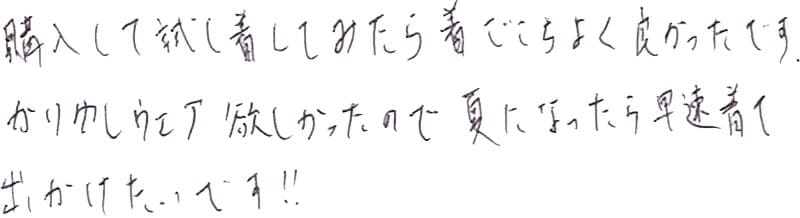 購入して試し着してみたら着ごこちよく良かったです.
かりゆしウェア欲しかったので夏になったら早速着て
出かけたいです!!